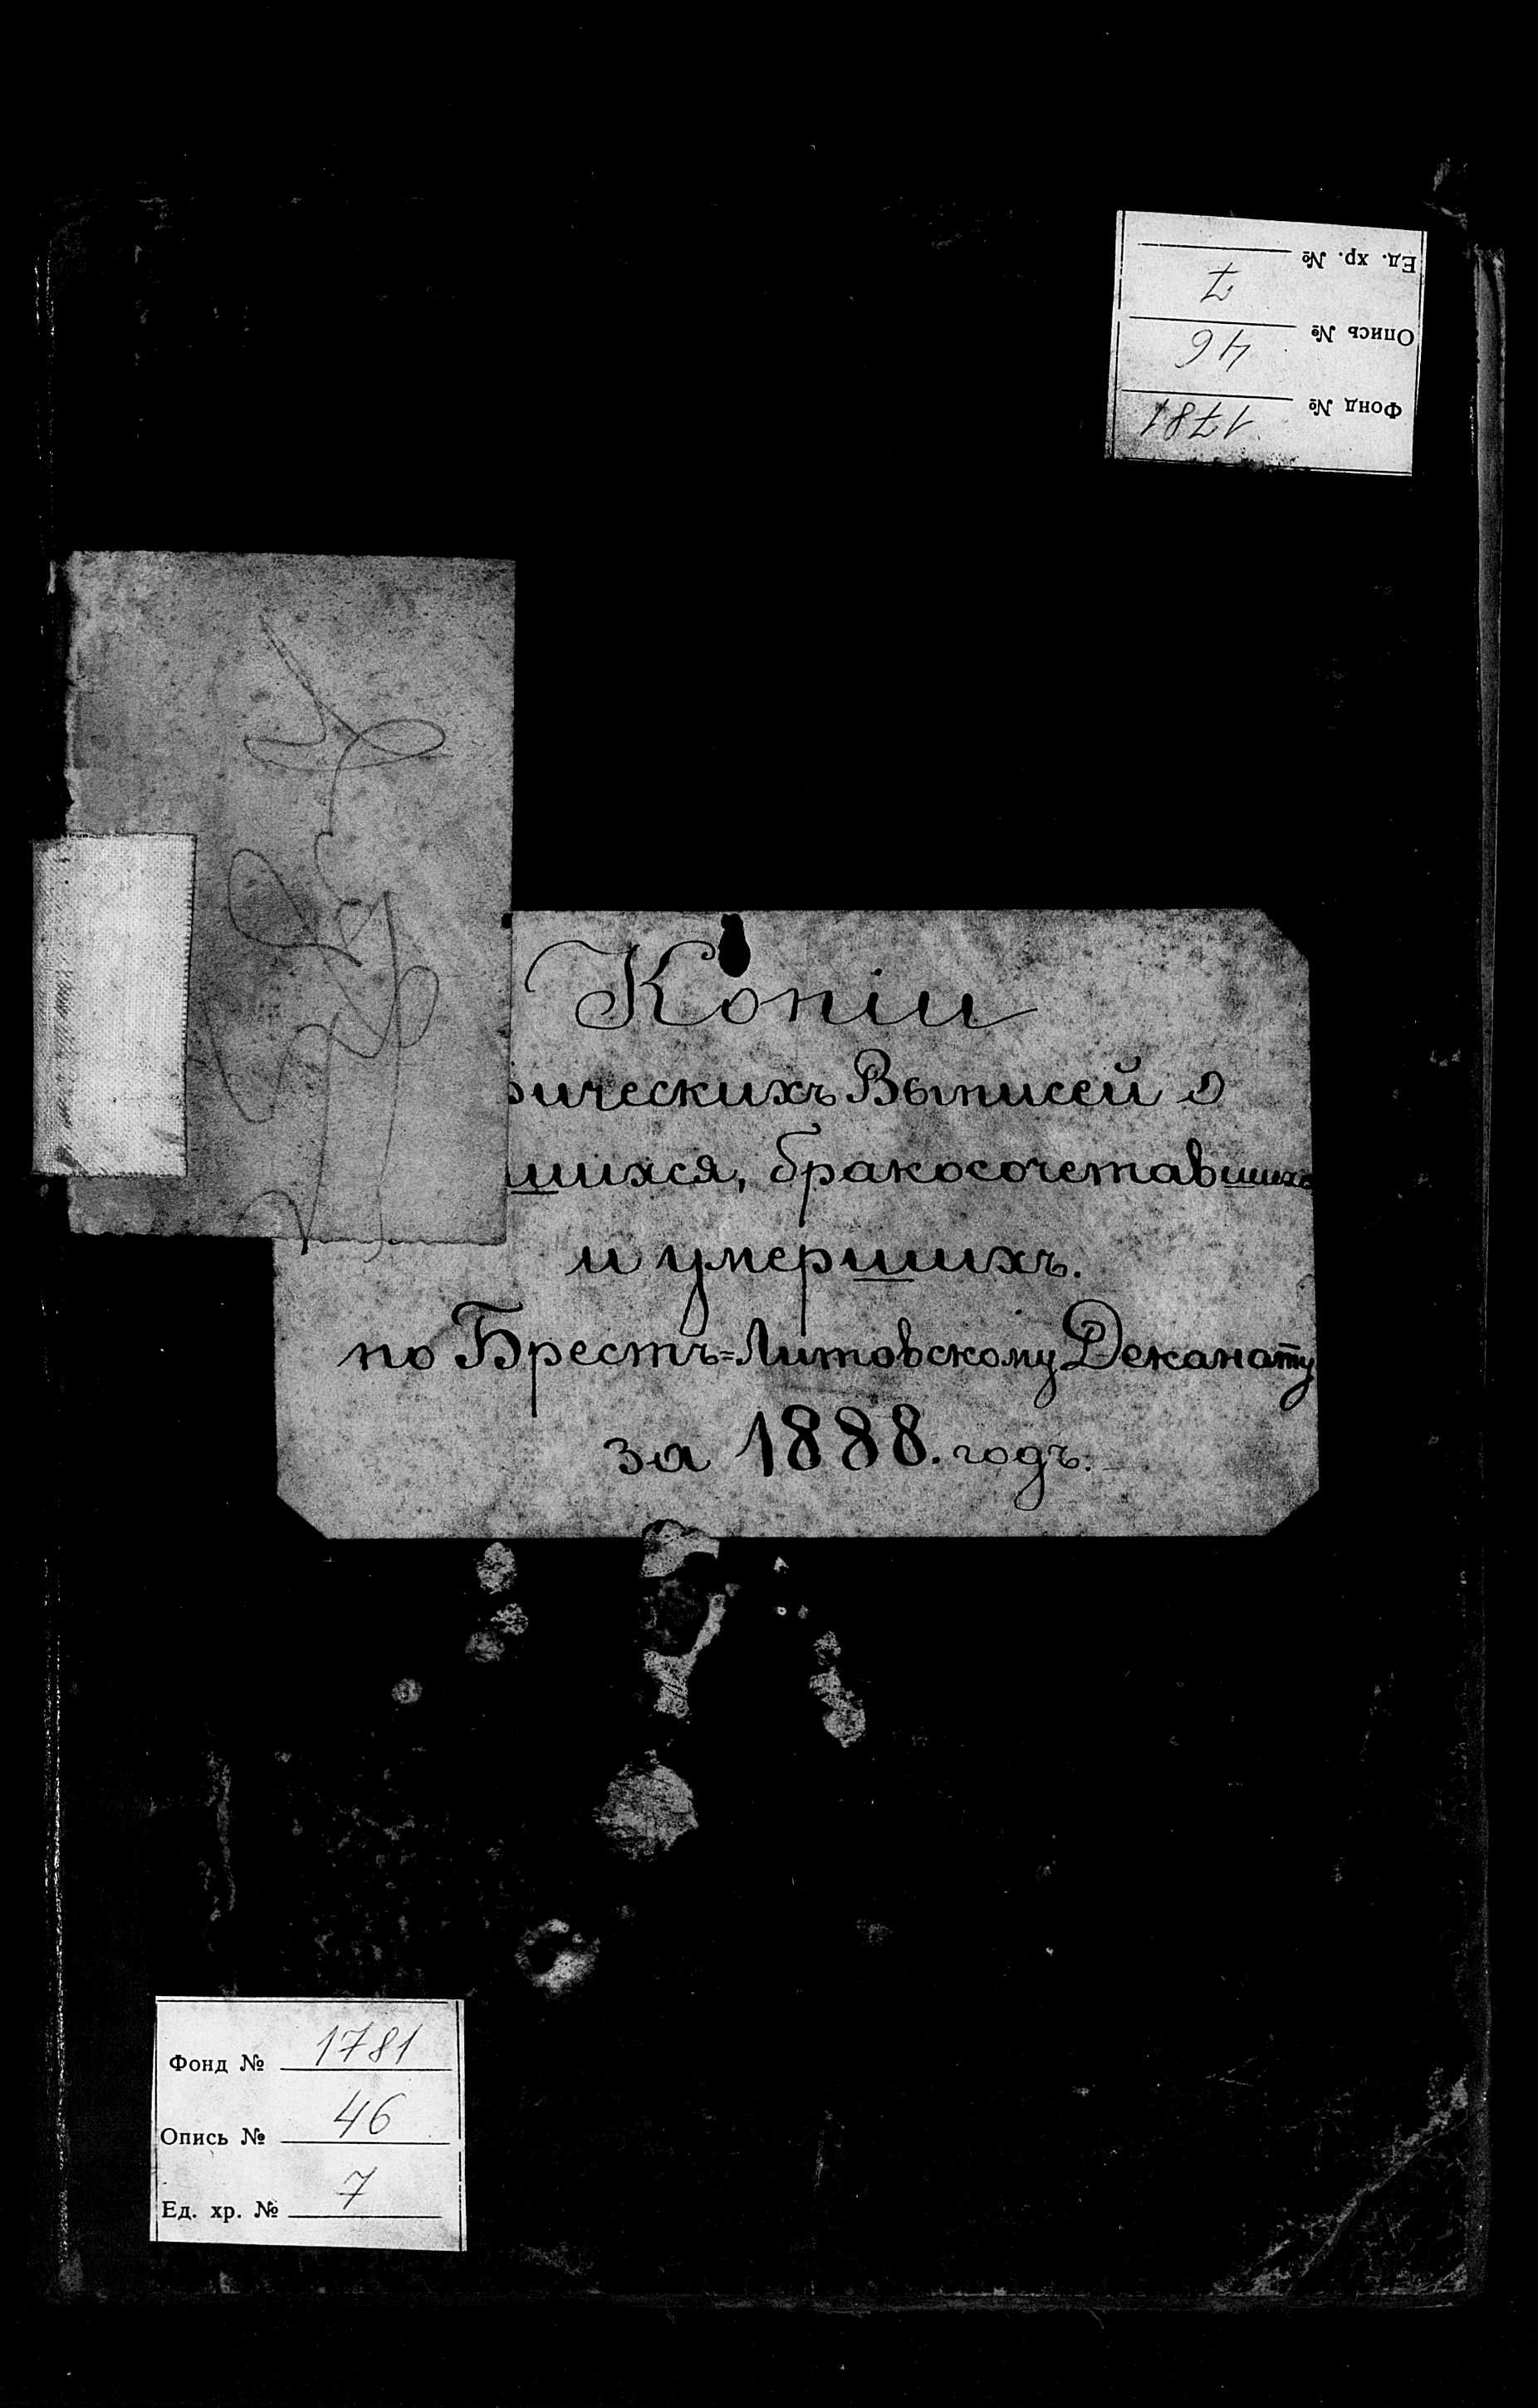 Ед. хр. № 7
Опись № 46
Фонд № 1781
Копіи
рическихъ Выписей о
шихся, бракосочетавшихся
и умершихъ.
по Брестъ=Литовскому Деканату
за 1888. годъ.
Фонд № 1781
Опись № 46
Ед. хр. № 7